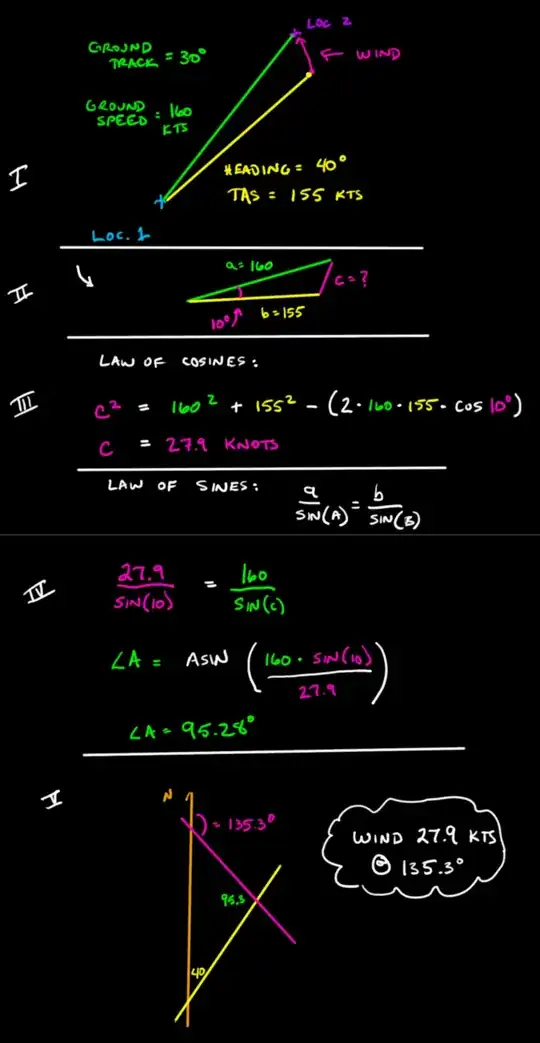 LOC 2
GROUND
TRACK = 30°
← WIND
GROUND
SPEED = 160
KTS
I
HEADING = 40°
TAS = 155 KTS
LOC. 1
a=160
II
C=?
10°
b=155
LAW OF COSINES:
III
C² = 160² + 155² - (2·160·155·COS 10°)
C = 27.9 KNOTS
LAW OF SINES:
a/SIN(A) = b/SIN(B)
IV
27.9/SIN(10) = 160/SIN(C)
∠A = ASIN (160·SIN(10)/27.9)
∠A = 95.28°
V
N
) = 135.3°
WIND 27.9 KTS
@ 135.3°
95.3
40